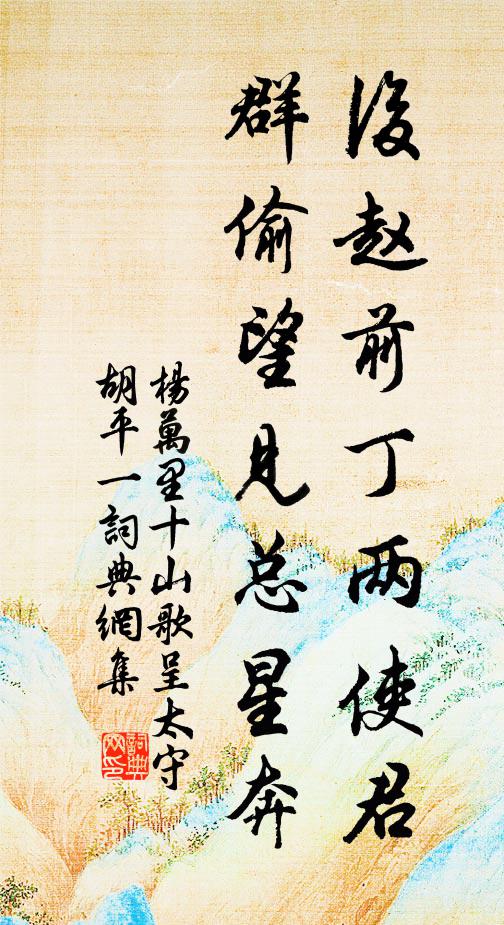 後赵前丁两使君
群偷望见总星奔
楊萬里十山歌呈太守
胡平一詞典網集
詞典網印